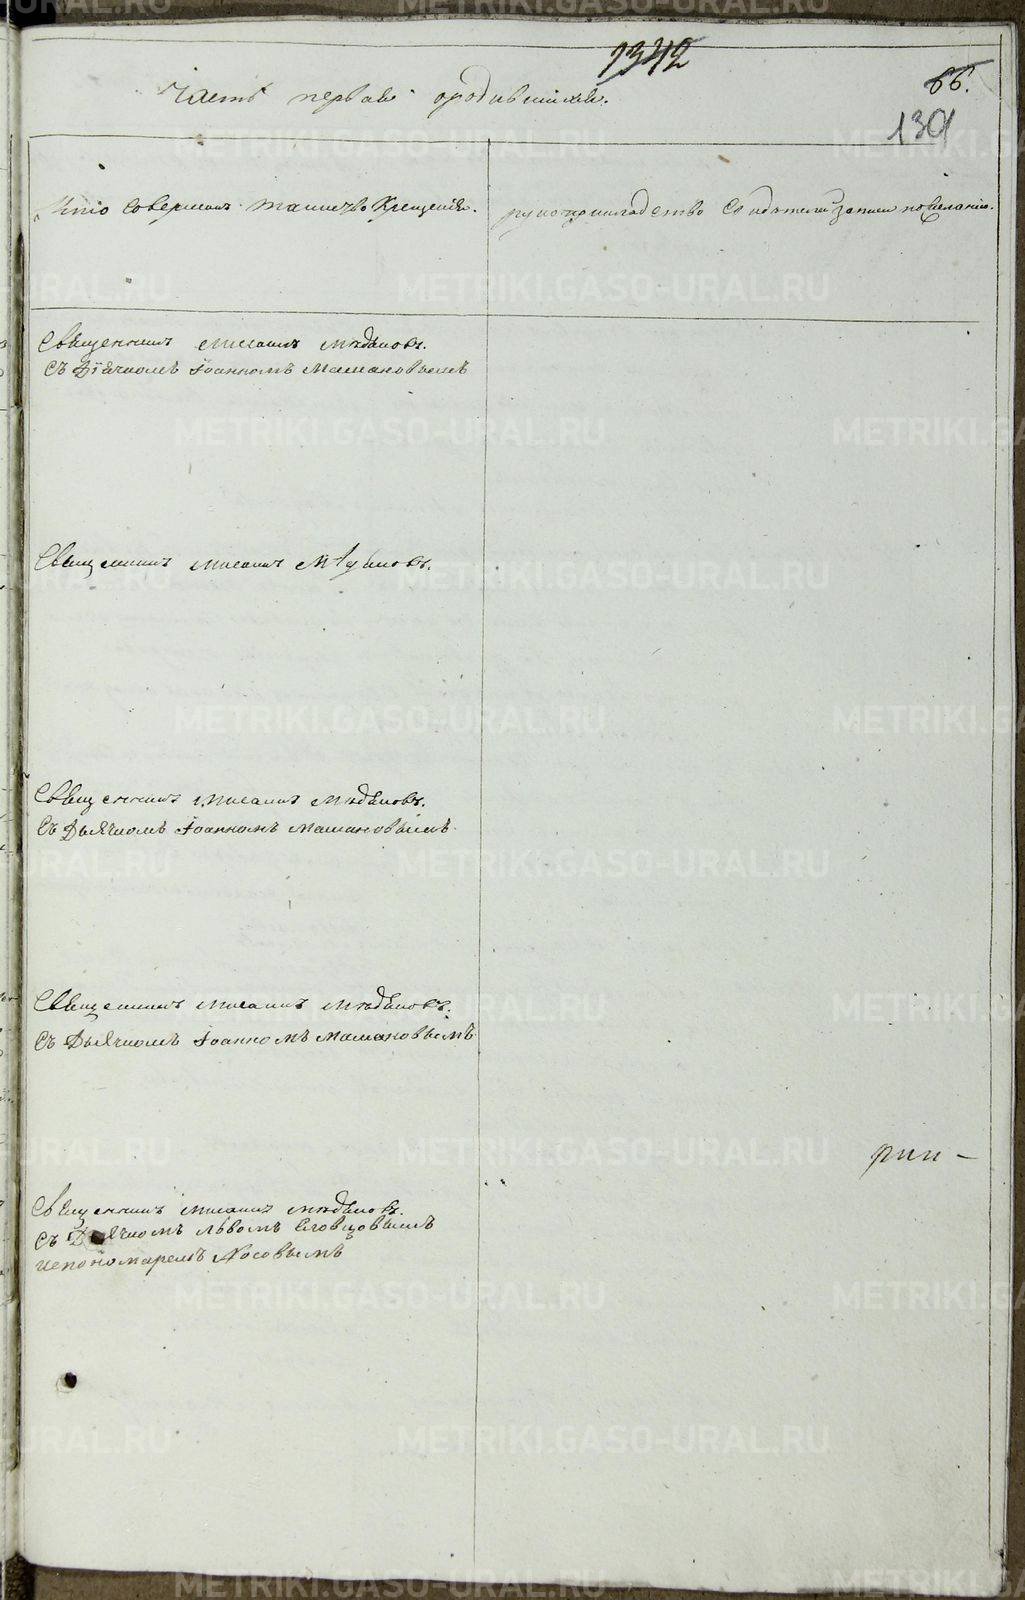 1342
66.
Часть первая ородившихся.
1301
Кто совершалъ таинство Крещенія.
рукоприкладство свидѣтелей записи пожеланію.
Священникъ Михаилъ Мѣдяковъ.
Съ Діячкомъ Іоанномъ Мамановымъ
Священникъ Михаилъ Мѣдяковъ.
Священникъ Михаилъ Мѣдяковъ.
Съ Дьячкомъ Іоанномъ Мамановымъ.
Священникъ Михаилъ Мѣдяковъ.
Съ Дьячкомъ Іоанномъ Мамановымъ
рии -
Священникъ Михаилъ Мѣдяковъ.
Съ Дьячкомъ Львомъ Словцовымъ
ипономаремъ Носовымъ
METRIKI.GASO-URAL.RU